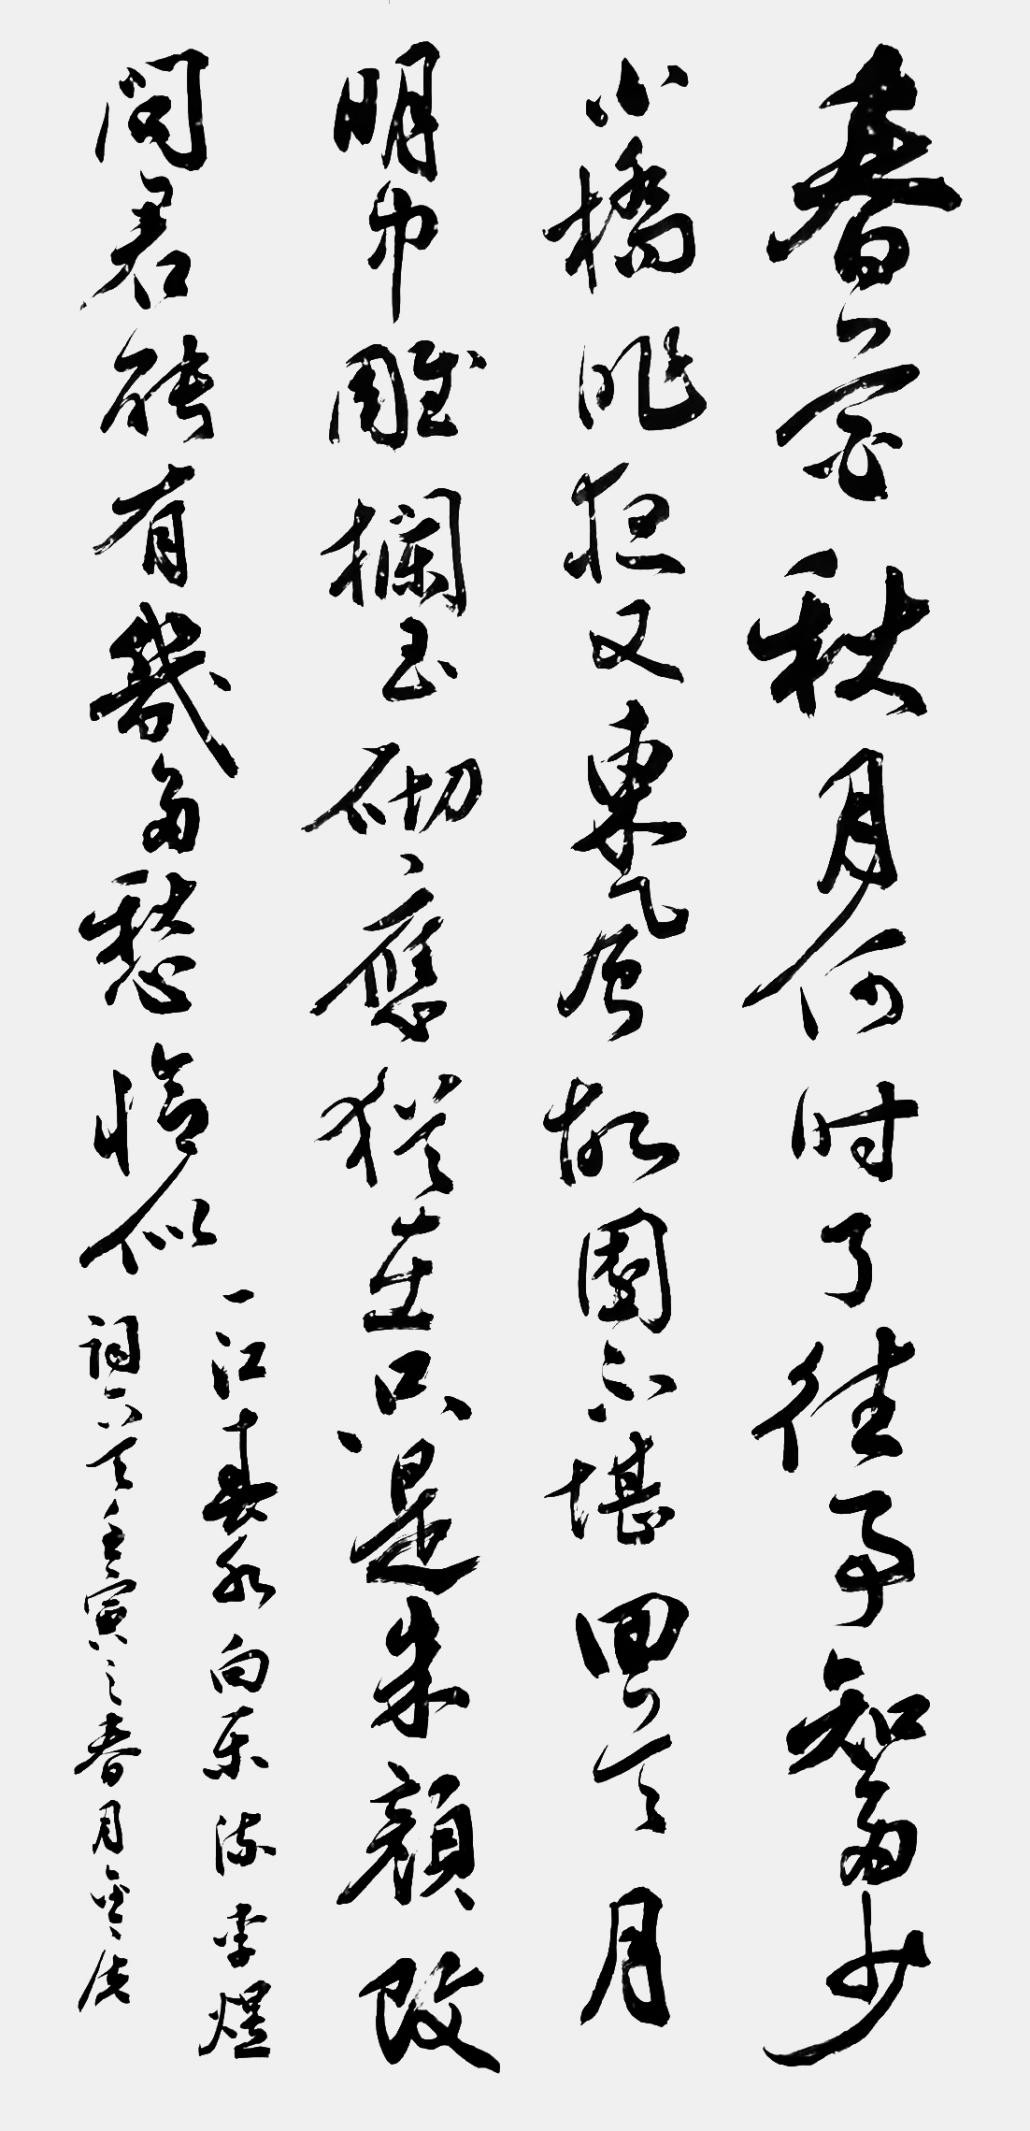 春花秋月何时了往事知多少
小橋昨夜又東風故園不堪回首月
明中雕欄玉砌應猶在只是朱顏改
問君能有幾多愁恰似
一江春水向东流李煜
词一首壬寅之春月